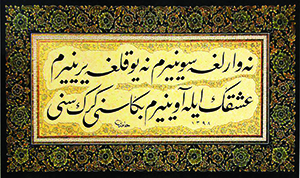 نه وارلغه سوینیرم نه یوقلغه یرینیرم
عشقڭ ایله آوینیرم بڭا سنی كرك سنی